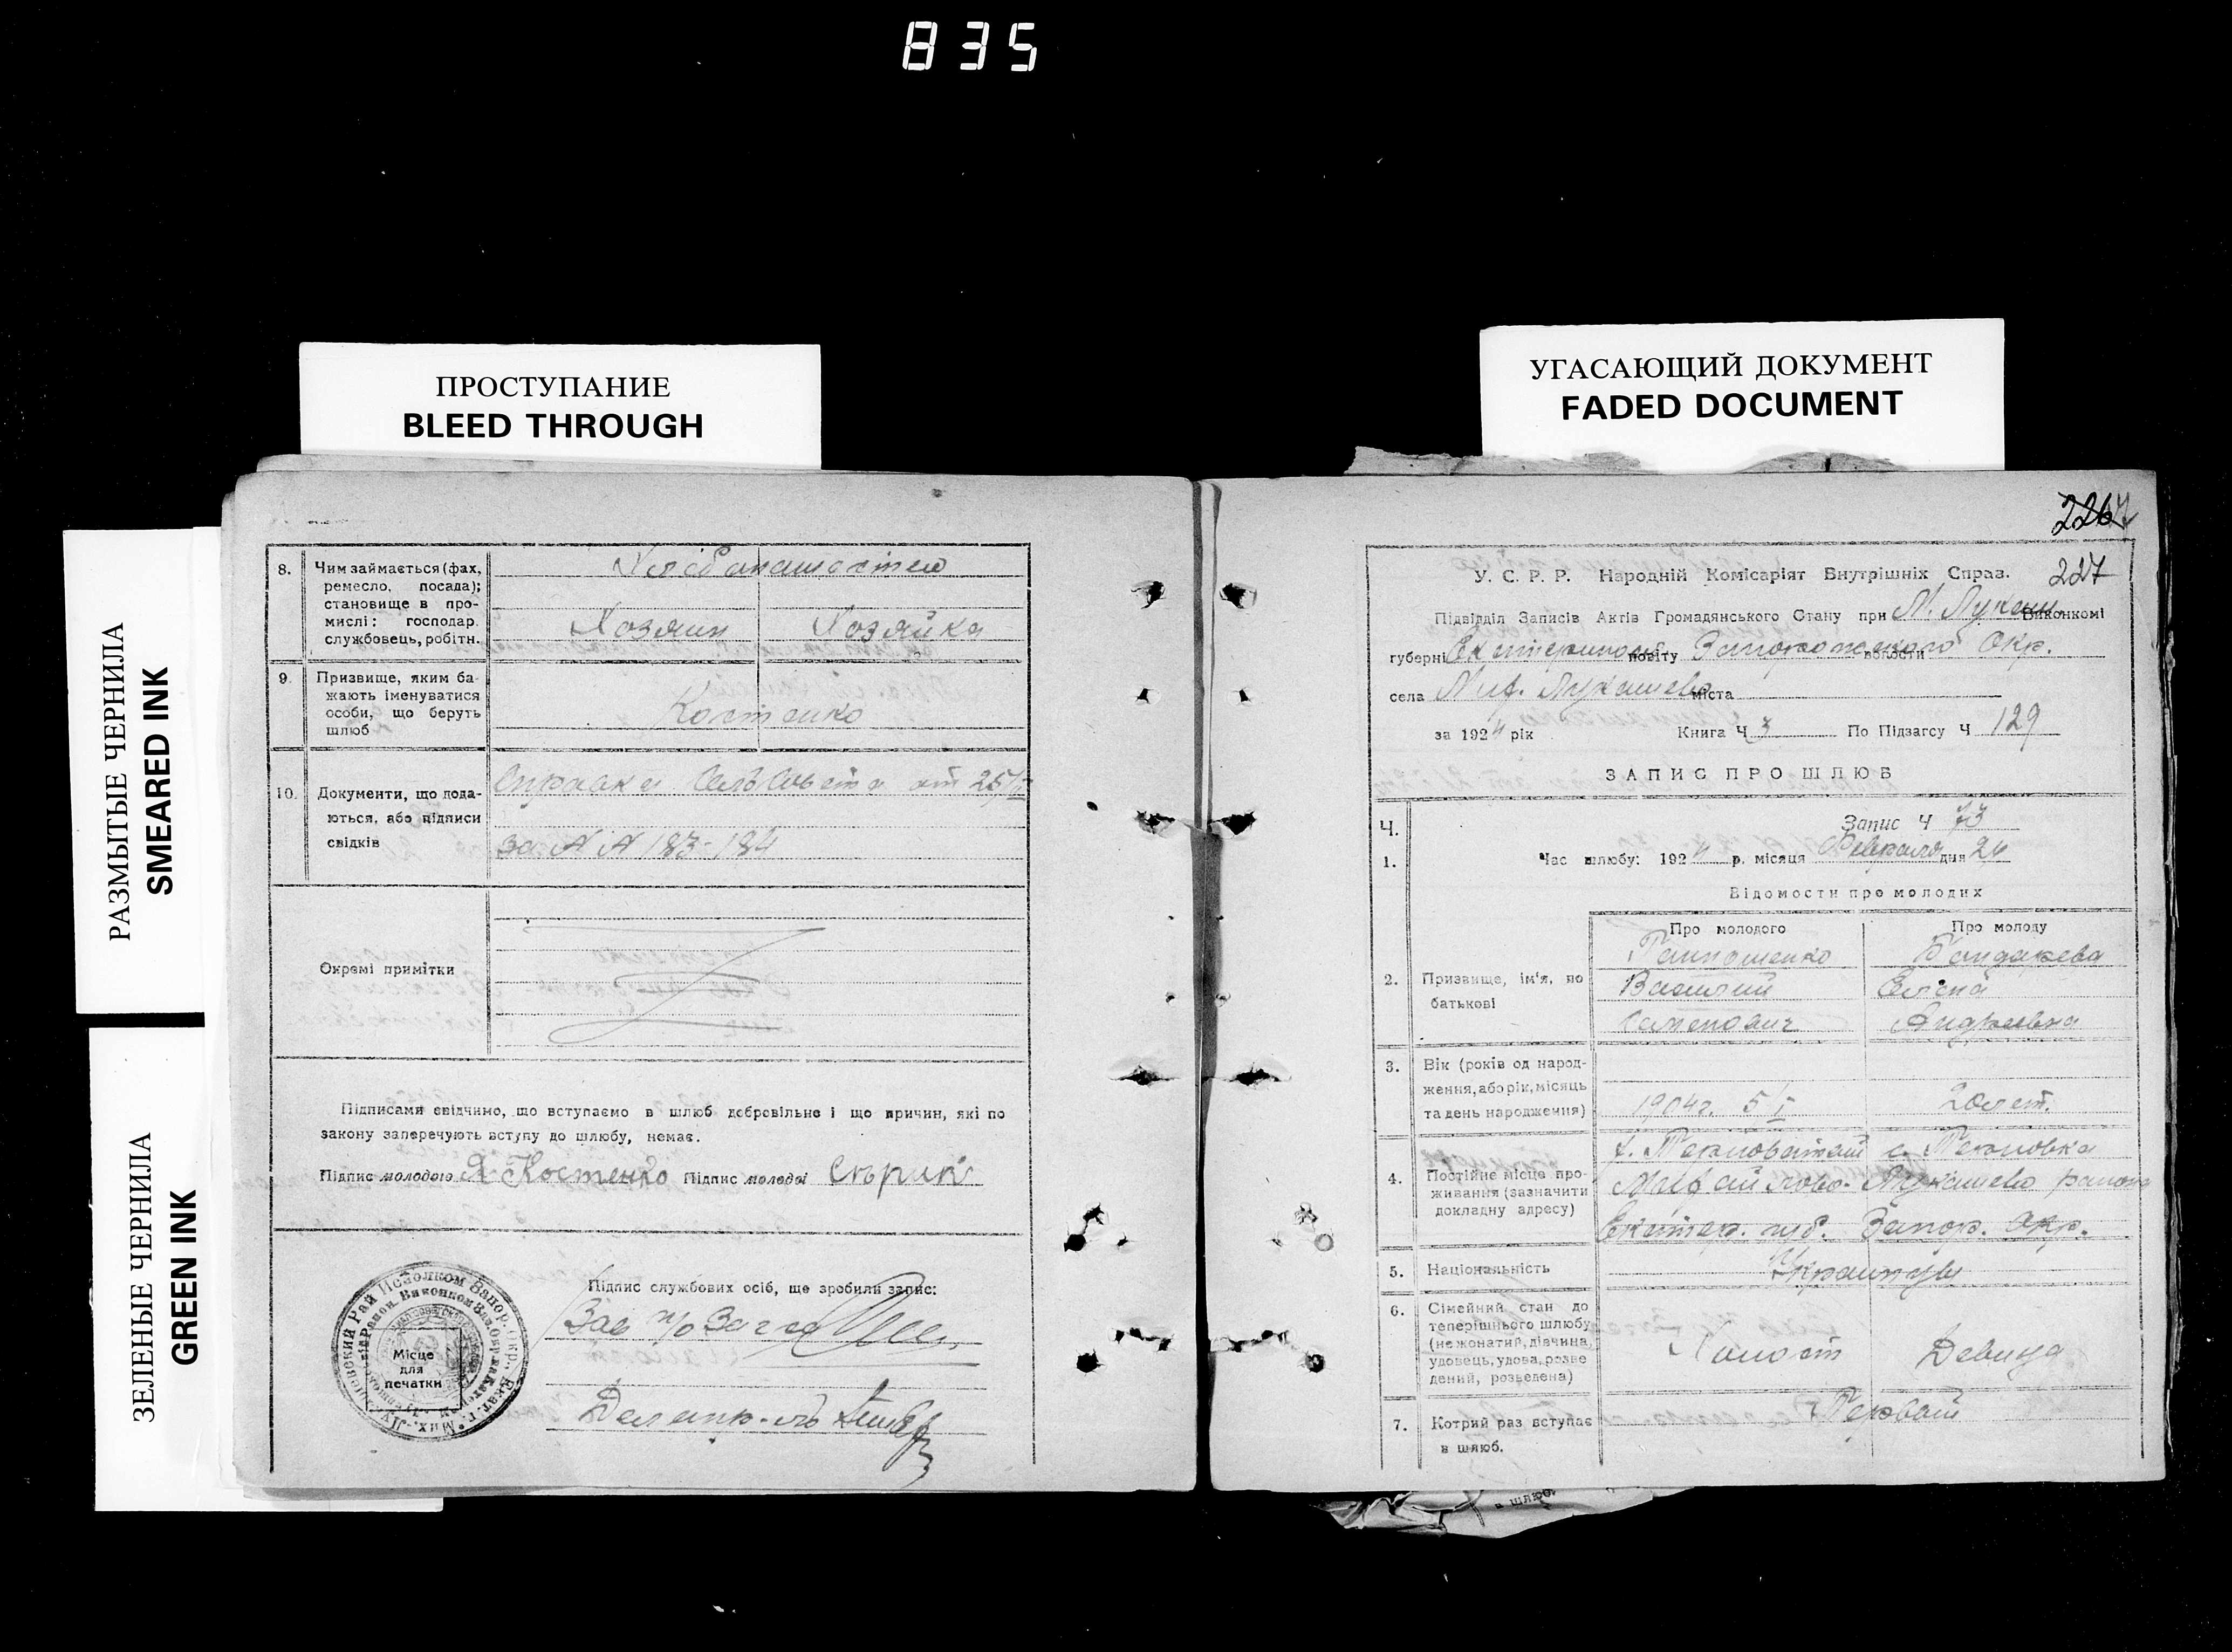 835
ПРОСТУПАНИЕ
BLEED THROUGH
УГАСАЮЩИЙ ДОКУМЕНТ
FADED DOCUMENT
РАЗМЫТЫЕ ЧЕРНИЛА
SMEARED INK
ЗЕЛЕНЫЕ ЧЕРНИЛА
GREEN INK
8. Чим займається (фах,
ремесло, посада);
становище в про-
мислі: господар
службовець, робітн.
Хозяин Хозяйка
9. Призвище, яким ба-
жають іменуватися
особи, що беруть
шлюб
Костенко
10. Документи, що дода-
ються, або підписи
свідків
Справка СельСовета от 25/II
за NN 183-184
Окремі примітки
Підписами свідчимо, що вступаємо в шлюб добровільно і що причин, які по
закону заперечують вступу до шлюбу, немає.
Підпис молодого Я Костенко Підпис молодої Сърик
Підпис службових осіб, що зробили запис:
Зав п/о Загса
Місце
для
печатки
226
227
У. С. Р. Р. Народній Комісаріят Внутрішніх Справ.
Підвідділ Записів Актів Громадянського Стану при М. Лукаш. Виконкомі
губерні Екатеринос. повіту Запорожского волости Окр.
села Мих. Лукашево міста
за 1924 рік Книга Ч 3 По Підзагсу Ч 129
ЗАПИС ПРО ШЛЮБ
Ч. Запис Ч 73
1. Час шлюбу: 1924 р. місяця Февраля дня 26
Відомости про молодих
Про молодого Про молоду
2. Призвище, ім'я, по
батькові
Бондарева
Василий Елена
Семенович Андреевна
3. Вік (років од народ-
ження, або рік, місяць
та день народження)
1904г. 5 I 20 лет.
4. Постійне місце про-
живання (зазначити
докладну адресу)
с. Терноватый с. Терновка
Михайлово-Лукашево района
Екатер. губ. Запор. Окр.
5. Національність
Украинцы
6. Сімейний стан до
теперішнього шлюбу
(не жонатий, дівчина,
удовець, удова, розве
дений, розведена)
Холост Девица
7. Котрий раз вступає
в шлюб.
Первый